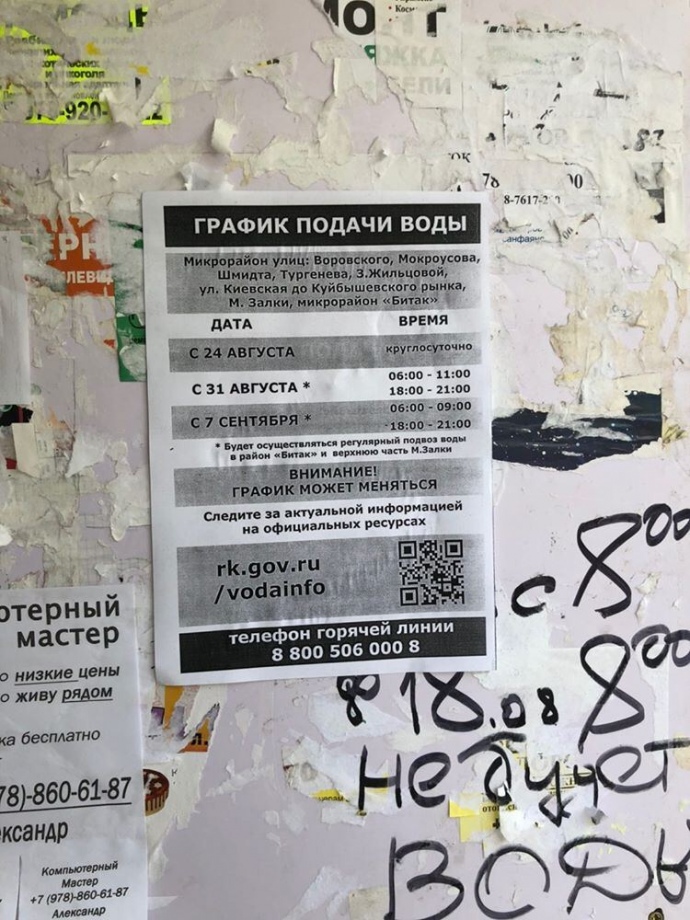 МОНТ
ЯЖКА
8-7617-2
ГРАФИК ПОДАЧИ ВОДЫ
Микрорайон улиц: Воровского, Мокроусова,
Шмидта, Тургенева, З.Жильцовой,
ул. Киевская до Куйбышевского рынка,
М. Залки, микрорайон «Битак»
ДАТА ВРЕМЯ
С 24 АВГУСТА круглосуточно
С 31 АВГУСТА * 06:00 - 11:00
18:00 - 21:00
С 7 СЕНТЯБРЯ * 06:00 - 09:00
18:00 - 21:00
* Будет осуществляться регулярный подвоз воды
в район «Битак» и верхнюю часть М.Залки
ВНИМАНИЕ!
ГРАФИК МОЖЕТ МЕНЯТЬСЯ
Следите за актуальной информацией
на официальных ресурсах
rk.gov.ru
/vodainfo
телефон горячей линии
8 800 506 000 8
с 8 00
18.08 8 00
не будет
воды
ютерный
мастер
о низкие цены
о живу рядом
ка бесплатно
78)-860-61-87
ександр
Компьютерный
Мастер
+7 (978)-860-61-87
Александр